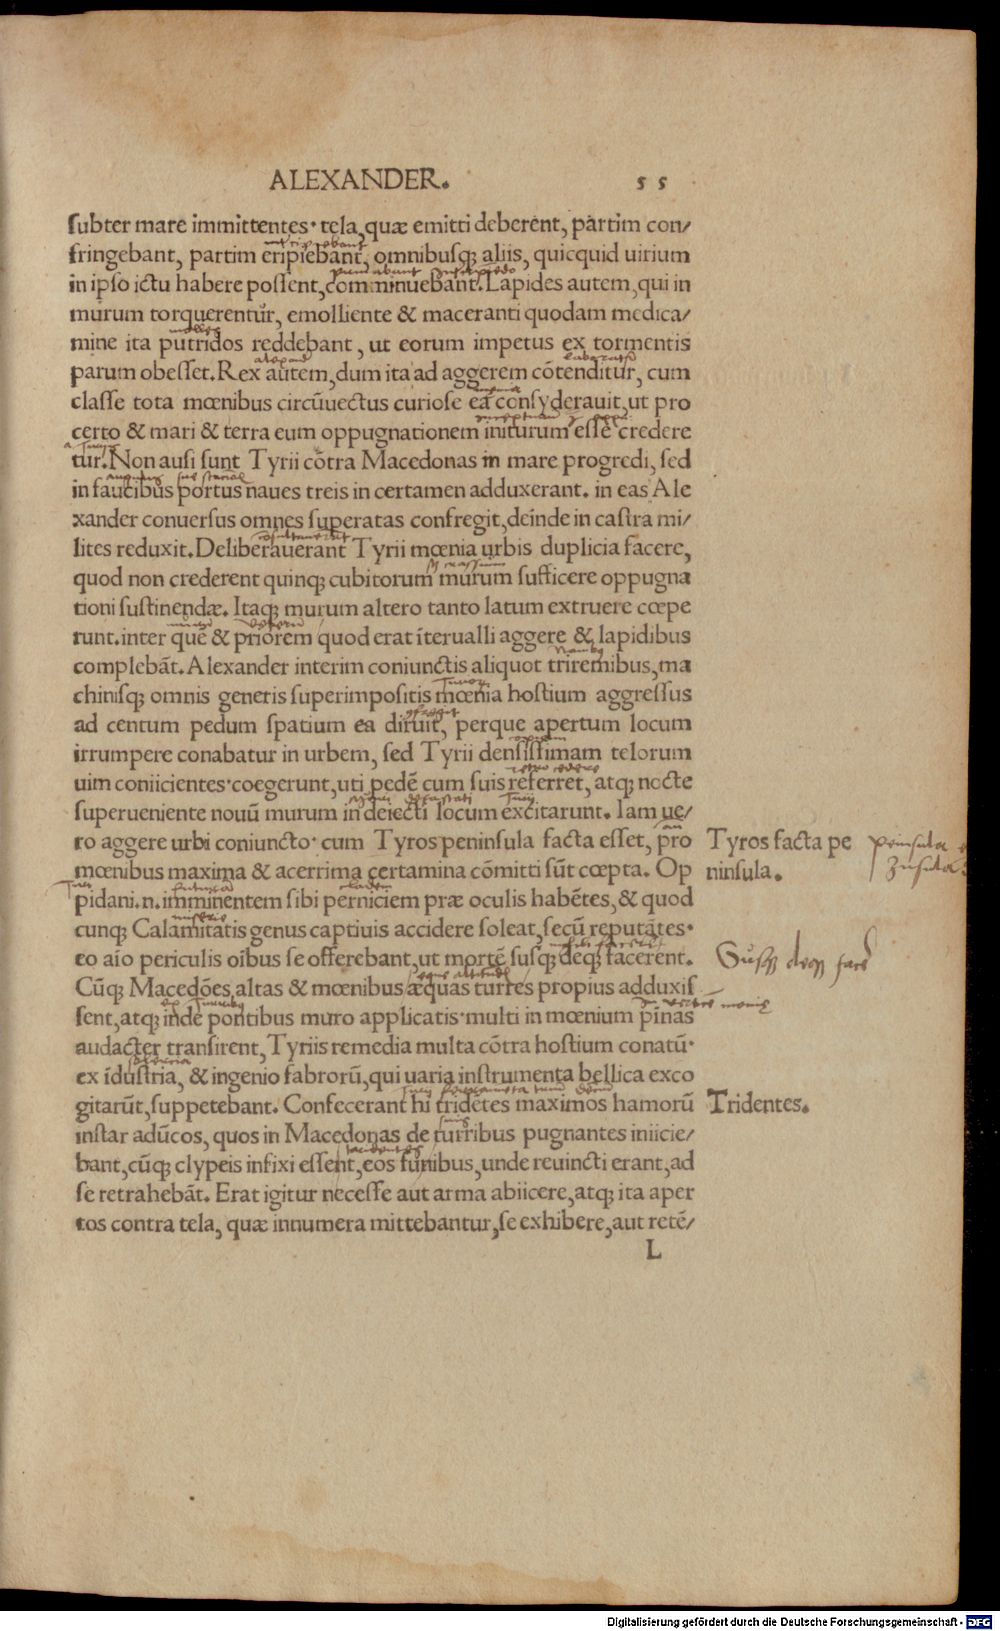 ALEXANDER. 55
subter mare immittentes· tela, quæ emitti deberent, partim con/
fringebant, partim eripiebant, omnibusqꝫ aliis, quicquid uirium
in ipso ictu habere possent, comminuebant. Lapides autem, qui in
murum torquerentur, emolliente & maceranti quodam medica/
mine ita putridos reddebant, ut eorum impetus ex tormentis
parum obesset. Rex autem, dum ita ad aggerem cōtenditur, cum
classe tota mœnibus circūuectus curiose ea consyderauit, ut pro
certo & mari & terra eum oppugnationem initurum esse credere
tur. Non ausi sunt Tyrii cōtra Macedonas in mare progredi, sed
in faucibus portus naues treis in certamen adduxerant. in eas Ale
xander conuersus omnes superatas confregit, deinde in castra mi/
lites reduxit. Deliberauerant Tyrii mœnia urbis duplicia facere,
quod non crederent quinqꝫ cubitorum murum sufficere oppugna
tioni sustinendæ. Itaqꝫ murum altero tanto latum extruere cœpe
runt. inter quē & priorem quod erat īterualli aggere & lapidibus
complebāt. Alexander interim coniunctis aliquot triremibus, ma
chinisqꝫ omnis generis superimpositis mœnia hostium aggressus
ad centum pedum spatium ea diruit, perque apertum locum
irrumpere conabatur in urbem, sed Tyrii densissimam telorum
uim coniicientes· coegerunt, uti pedē cum suis referret, atqꝫ nocte
superueniente nouū murum in deiecti locum excitarunt. Iam ue/
ro aggere urbi coniuncto· cum Tyros peninsula facta esset, pro
Tyros facta pe
mœnibus maxima & acerrima certamina cōmitti sūt cœpta. Op
ninsula.
pidani.n. imminentem sibi perniciem præ oculis habētes, & quod
cunqꝫ Calamitatis genus captiuis accidere soleat, secū reputātes·
eo aīo periculis oībus se offerebant, ut mortē susqꝫ deqꝫ facerent.
Cūqꝫ Macedōes altas & mœnibus æquas turres propius adduxis
sent, atqꝫ inde pontibus muro applicatis· multi in mœnium pinas
audacter transirent, Tyriis remedia multa cōtra hostium conatū·
ex īdustria, & ingenio fabrorū, qui uaria instrumenta bellica exco
gitarūt, suppetebant. Confecerant hi tridētes maximos hamorū
Tridentes.
instar adūcos, quos in Macedonas de turribus pugnantes iniicie/
bant, cūqꝫ clypeis infixi essent, eos funibus, unde reuincti erant, ad
se retrahebāt. Erat igitur necesse aut arma abiicere, atqꝫ ita aper
tos contra tela, quæ innumera mittebantur, se exhibere, aut retē/
L
Digitalisierung gefördert durch die Deutsche Forschungsgemeinschaft - DFG